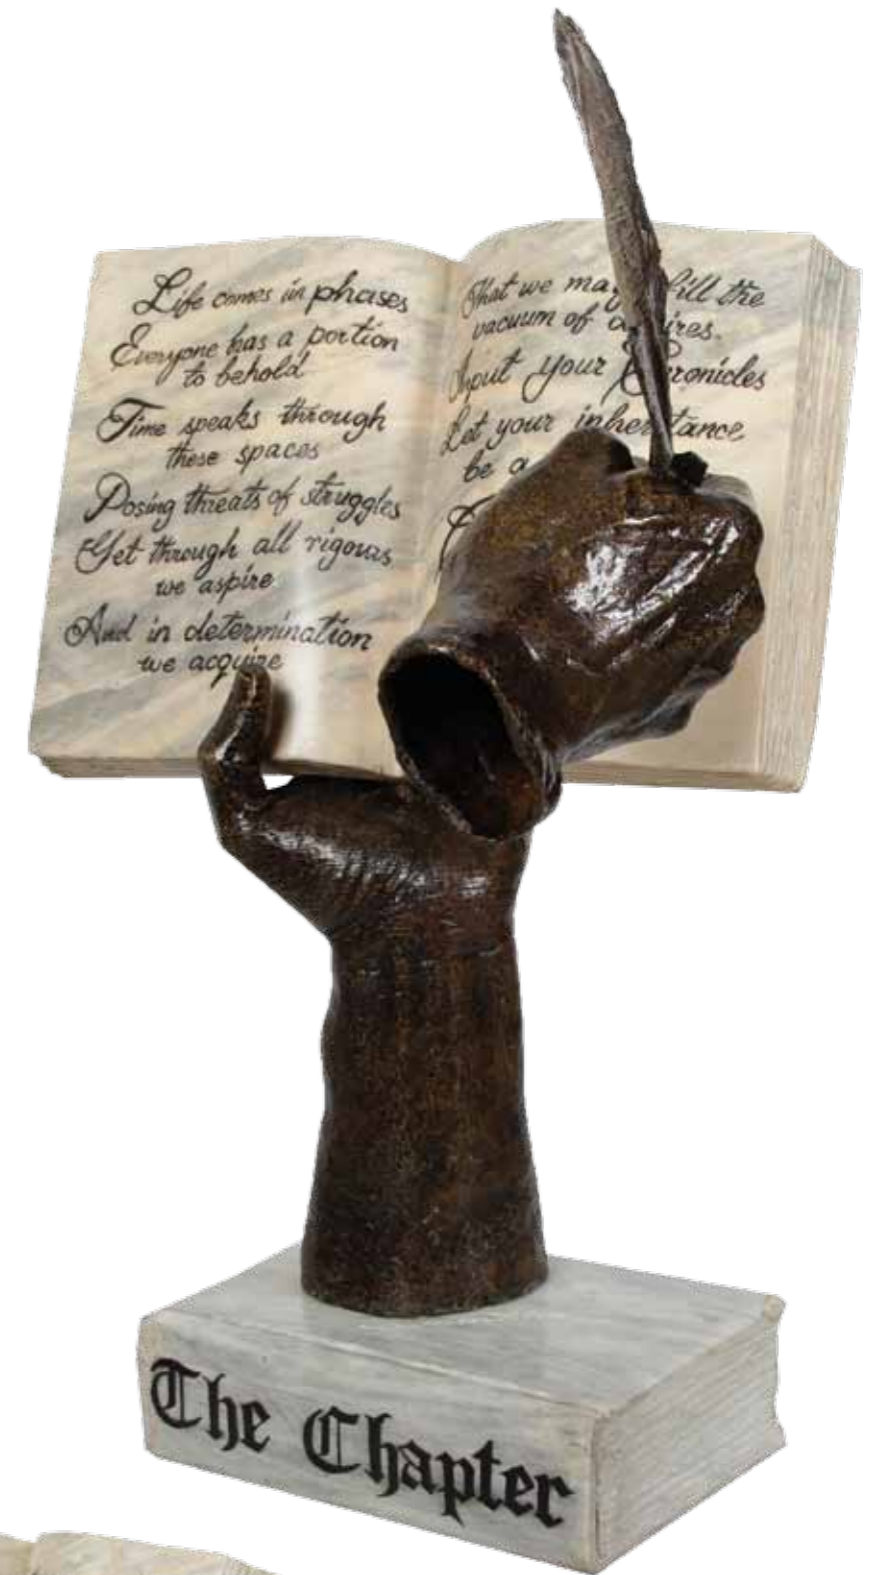 Life comes in phases
Everyone has a portion
to behold
Time speaks through
these spaces
Posing threats of struggles
Yet through all rigours
we aspire
And in determination
we acquire
That we may fill the
vacuum of
Input your Chronicles
Let your inheritance
be a
The Chapter